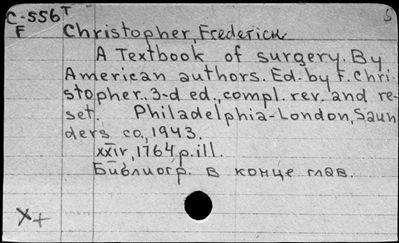 C-556T
F
Christopher, Frederick
A Textbook of surgery. By
American authors. Ed. by F. Chri-
stopher. 3-d ed., compl. rev. and re-
set. Philadelphia-London, Saun
ders co, 1943.
XXIV, 1764 p. ill.
Библиогр. в конце глав.
X+